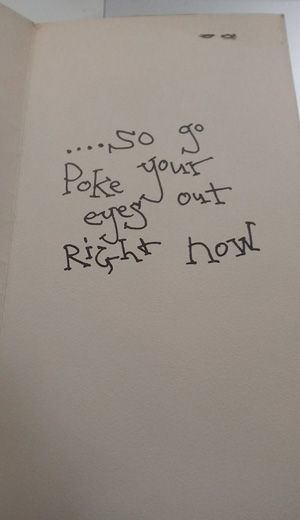 ....so go
Poke your
eyes out
Right now